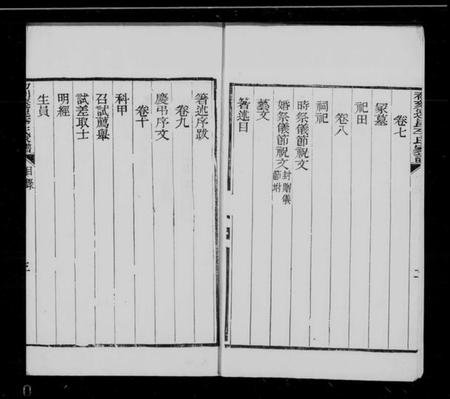 卷七
冢墓
祀田
卷八
祠祀
時祭儀節祝文
婚祭儀節祝文 封贈儀節附
藝文
著述目
二
著述序跋
卷九
慶弔序文
卷十
科甲
召試薦舉
試差取士
明經
生員
目錄
三